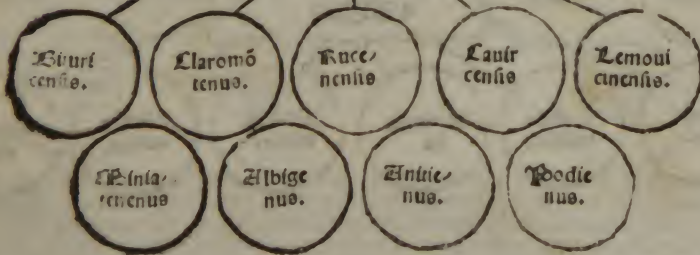 Bituri
censis.
Claromō
tenus.
Ruce⸗
nensis
Caur
censis
Lemoui
cinensis.
Albige
nus.
Anicie⸗
nus.
Podie
nus.